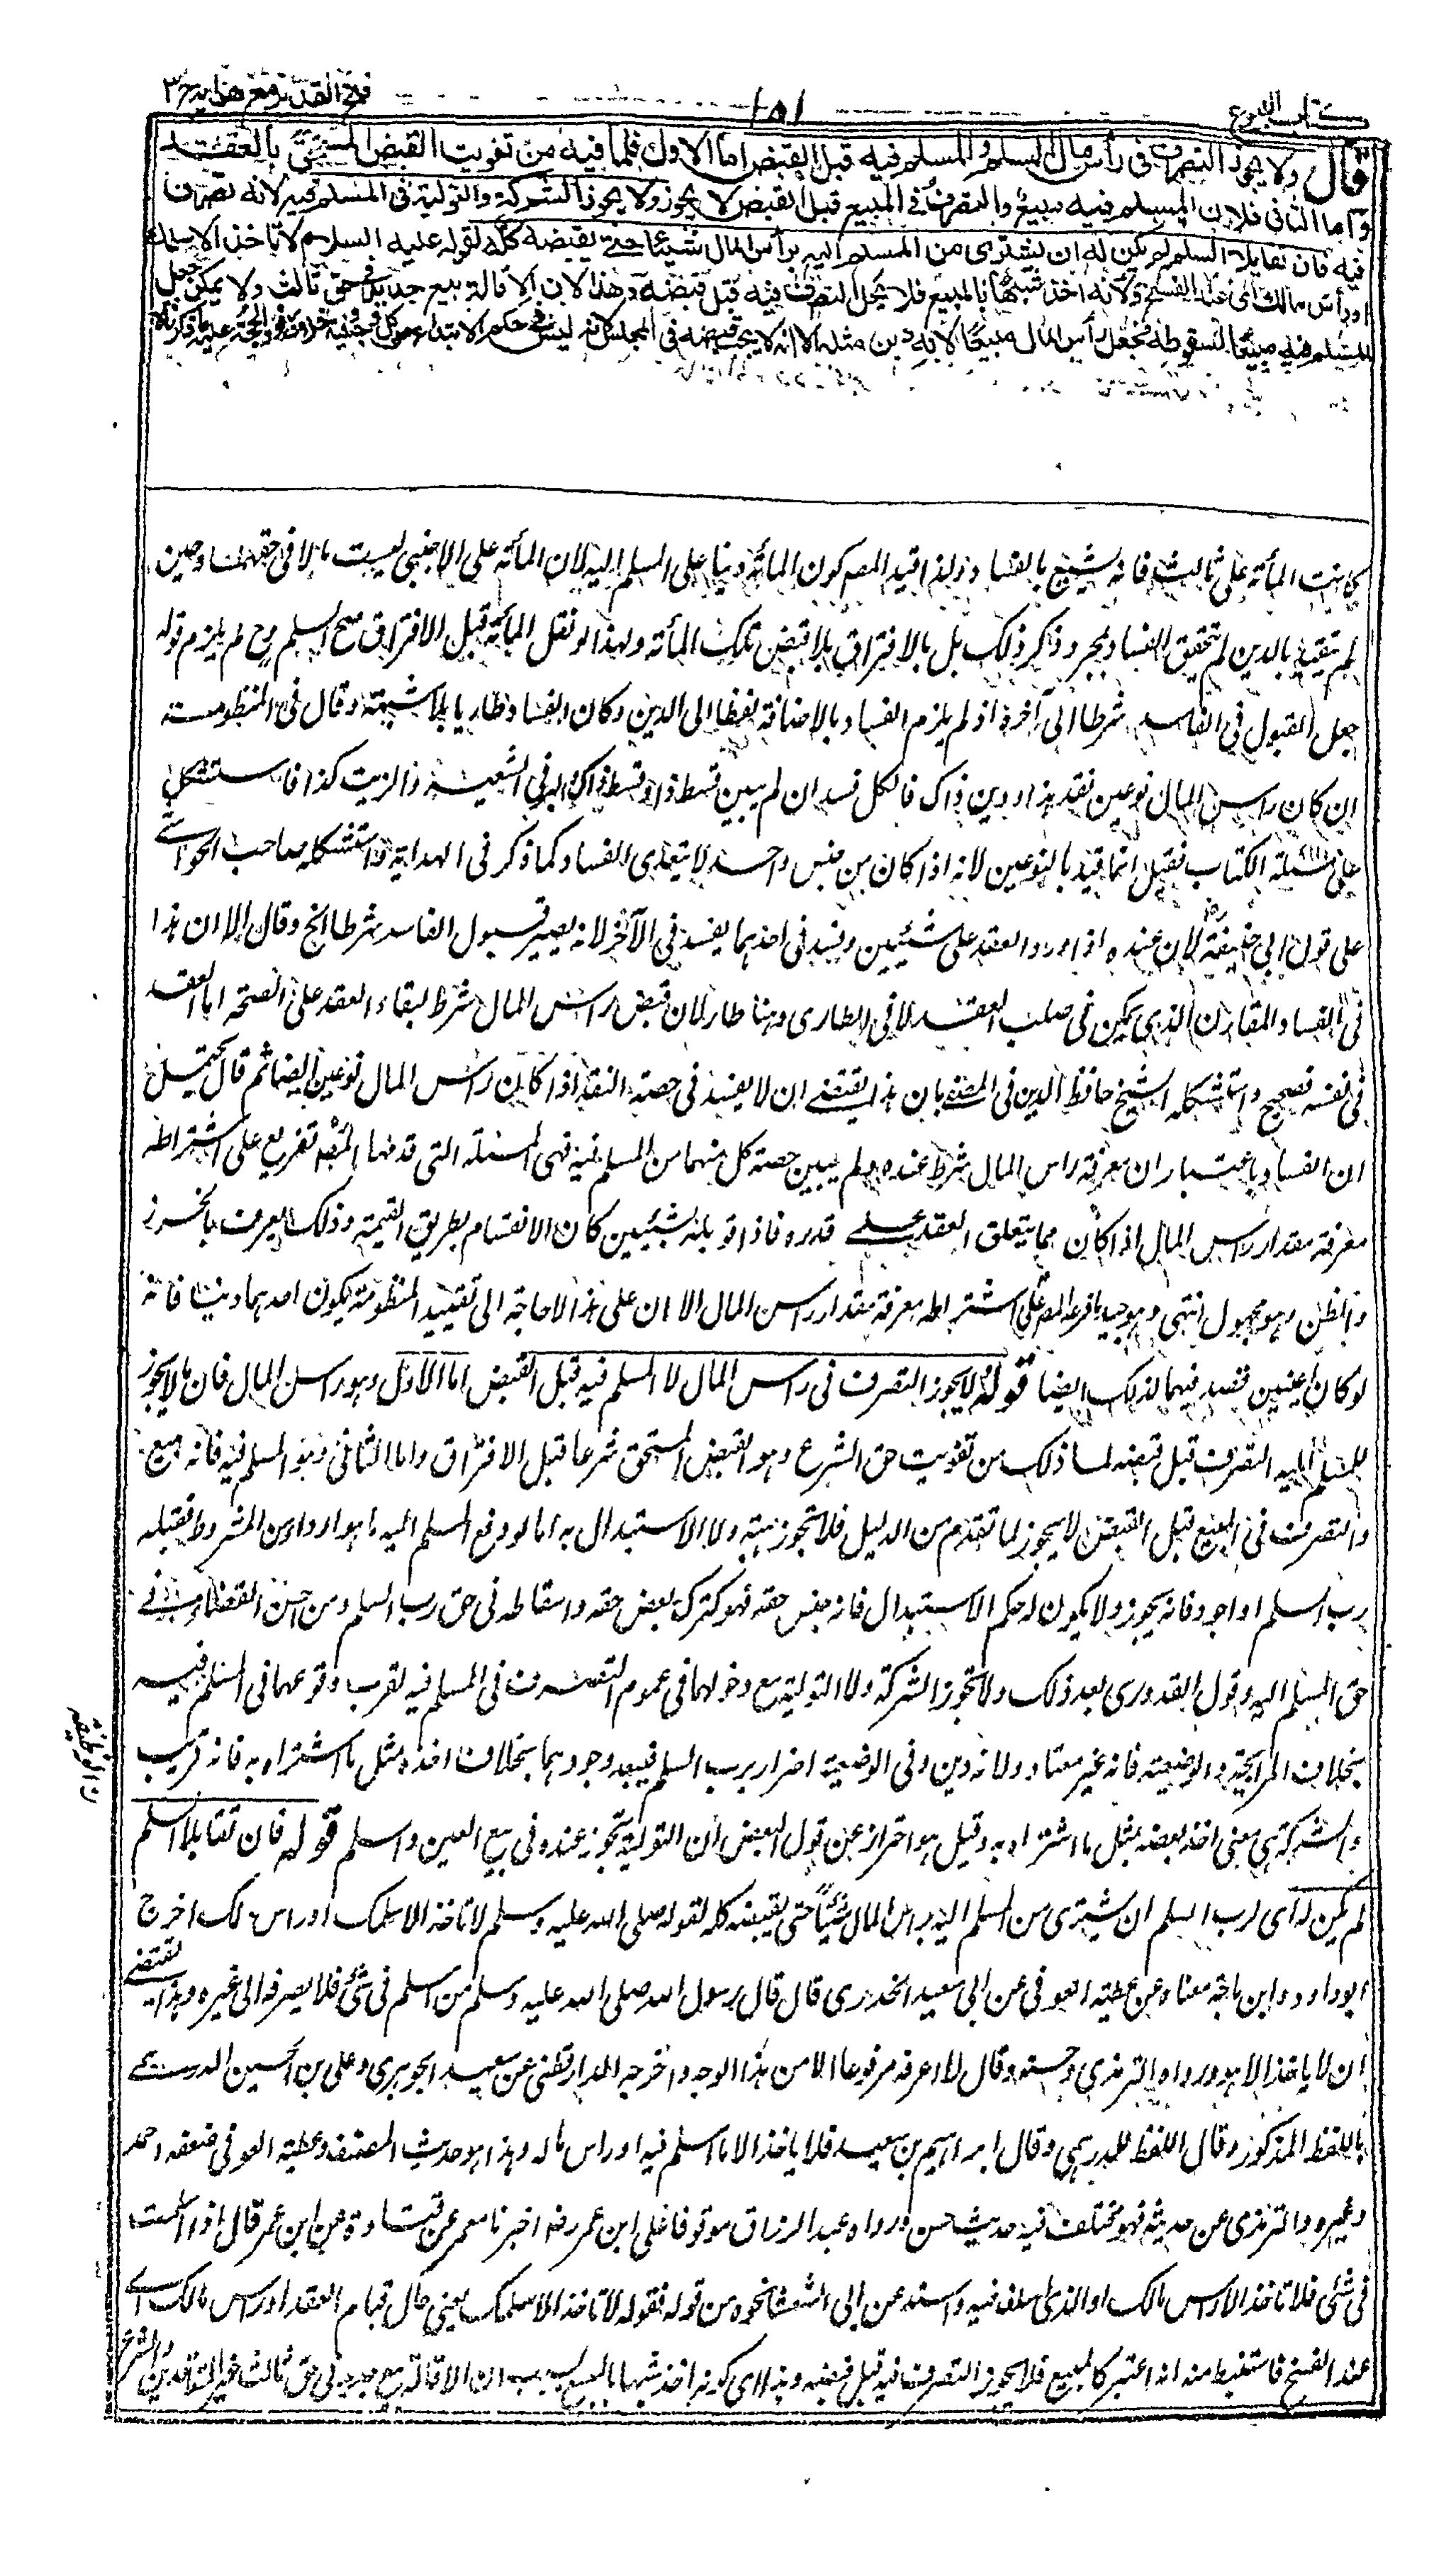 كتاب البيوع
١٥١
فتح القدير مع هدايه ج ٣
قال ولا يجوز التصرف فى رأس مال السلم والمسلم فيه قبل القبض اما الاول فلما فيه من تفويت القبض المستحق بالعقد
واما الثانى فلان المسلم فيه مبيع والتصرف فى المبيع قبل القبض لا يجوز ولا يجوز الشركة والتولية فى المسلم فيه لانه تصرف
فيه فان تقايلا السلم لم يكن له ان يشترى من المسلم اليه برأس المال شيئا حتى يقبضه كله لقوله عليه السلام لا تاخذ الا سلمك
او رأس مالك اى عند الفسخ ولانه اخذ شبها بالمبيع فلا يحل التصرف فيه قبل قبضه وهذا لان الاقالة بيع جديد فى حق ثالث ولا يمكن جعل
المسلم فيه مبيعا لسقوطه فجعل رأس المال مبيعا لانه دين مثله الا انه لا يجب قبضه فى المجلس لانه ليس فى حكم الابتداء من كل وجه وفيه خلاف زفر والحجة عليه ما ذكرناه
كانت المأة على ثالث فانه يشيع بالفساد ولذا قيد المصـ كون المأة دينا على المسلم اليه لان المأة على الاجنبى ليست مالا فى حقهما وحين
لم يتقيد بالدين لم يتحقق الفساد بمجرد ذكر ذلك بل بالافتراق بلا قبض تلك المأة ولهذا لو نقل المأة قبل الافتراق صح السلم وح لم يلزم قوله
جعل القبول فى الفاسد شرطا الى آخره اذ لم يلزم الفساد بالاضافة لفظا الى الدين وكان الفساد طاريا بلا شبهة وقال فى المنظومة
ان كان راس المال نوعين نقد هذا ودين ذاك فالكل فسد ان لم يبين قسط ذا وقسط ذاك والبر فى الشعير ذا الزيت كذا فاستشكل
على مسئلة الكتاب فقيل انما قيد بالنوعين لانه اذا كان من جنس واحد لا يتعدى الفساد كما ذكر فى الهداية واستشكله صاحب الحواشى
على قول ابى حنيفة رح لان عنده اذا ورد العقد على شيئين وفسد فى احدهما يفسد فى الآخر لانه يصير قبول الفاسد شرطا الخ وقال الا ان هذا
فى الفساد المقارن الذى تمكن فى صلب العقد لا فى الطارى وهنا طار لان قبض راس المال شرط لبقاء العقد على الصحة اما العقد
فى نفسه فصحيح واستشكله الشيخ حافظ الدين فى المصفى بان هذا يقتضى ان لا يفسد فى حصة النقد اذا كان راس المال نوعين ايضا ثم قال يحتمل
ان الفساد باعتبار ان معرفة راس المال شرط عنده ولم يبين حصة كل منهما من المسلم فيه فهى المسئلة التى قدمها المصـ تفريع على اشتراطه
معرفة مقدار راس المال اذا كان مما يتعلق العقد على قدره فاذا قوبل بشيئين كان الانقسام بطريق القيمة وذلك يعرف بالخرز
والظن وهو مجهول انتهى وهو جيد فرعه المصـ على اشتراطه معرفة مقدار راس المال الا ان على هذا لا حاجة الى تقييد المنظومة بكون احدهما دينا فانه
لو كان عينين فسد فيهما لذلك ايضا قوله لا يجوز التصرف فى راس المال لا المسلم فيه قبل القبض اما الاول وهو راس المال فان ما لا يجوز
للمسلم اليه التصرف قبل قبضه لما ذلك من تفويت حق الشرع وهو القبض المستحق شرعا قبل الافتراق واما الثانى وهو المسلم فيه فانه مبيع
والتصرف فى المبيع قبل القبض لا يجوز لما تقدم من الدليل فلا تجوز هبته ولا الاستبدال به اما لو دفع المسلم اليه ما هو اردأ من المشروط فقبله
رب السلم او اجود فانه يجوز ولا يكون له حكم الاستبدال فانه جنس حقه فهو كترك بعض حقه واسقاطه فى حق رب السلم ومن احسن القضاء فى
حق المسلم اليه وقول القدورى بعد ذلك ولا تجوز الشركة ولا التولية مع دخولهما فى عموم التصرف فى المسلم فيه لقرب وقوعهما فى المسلم فيه
بخلاف المرابحة والوضيعة فانه غير معتاد ولانه دين وفى الوضيعة اضرار برب السلم فيبعد وجودهما بخلاف اخذه بمثل ما اشتراه به فانه قريب
والشركة هى معنى اخذ بعضه بمثل ما اشتراه به وقيل هو احتراز عن قول البعض ان التولية تجوز عنده فى بيع العين والسلم قوله فان تقايلا السلم
لم يكن له اى لرب السلم ان يشترى من المسلم اليه براس المال شيئا حتى يقبضه كله لقوله صلى الله عليه وسلم لا تاخذ الا سلمك او راس مالك اخرج
ابو داود وابن ماجة معناه عن عطية العوفى عن ابى سعيد الخدرى قال قال رسول الله صلى الله عليه وسلم من اسلم فى شئ فلا يصرفه الى غيره وهذا يقتضى
ان لا ياخذ الا هو ورواه الترمذى وحسنه وقال لا اعرفه مرفوعا الا من هذا الوجه واخرجه الدارقطنى عن سعيد الجوهرى وعلى بن الحسين الدرهمى
باللفظ المذكور وقال اللفظ للدرهمى وقال ابراهيم بن سعيد فلا ياخذ الا ما اسلم فيه او راس ماله وهذا هو حديث المصنف وعطية العوفى ضعفه احمد
وغيره والترمذى عن حديثه فهو مختلف فيه حديث حسن ورواه عبد الرزاق موقوفا على ابن عمر رض اخبرنا معمر عن قتادة عن ابن عمر قال اذا اسلمت
فى شئ فلا تاخذ الا راس مالك او الذى اسلف فيه واسنده عن ابى الشعثاء نحوه من قوله فقوله لا تاخذ الا سلمك يعنى حال قيام العقد او راس مالك اى
عند الفسخ فاستنبط منه انه اعتبر كالمبيع فلا يجوز التصرف فيه قبل قبضه وهذا اى كونه اخذ شبها بالمبيع بسبب ان الاقالة بيع جديد فى حق ثالث غير المتعاقدين والشرع